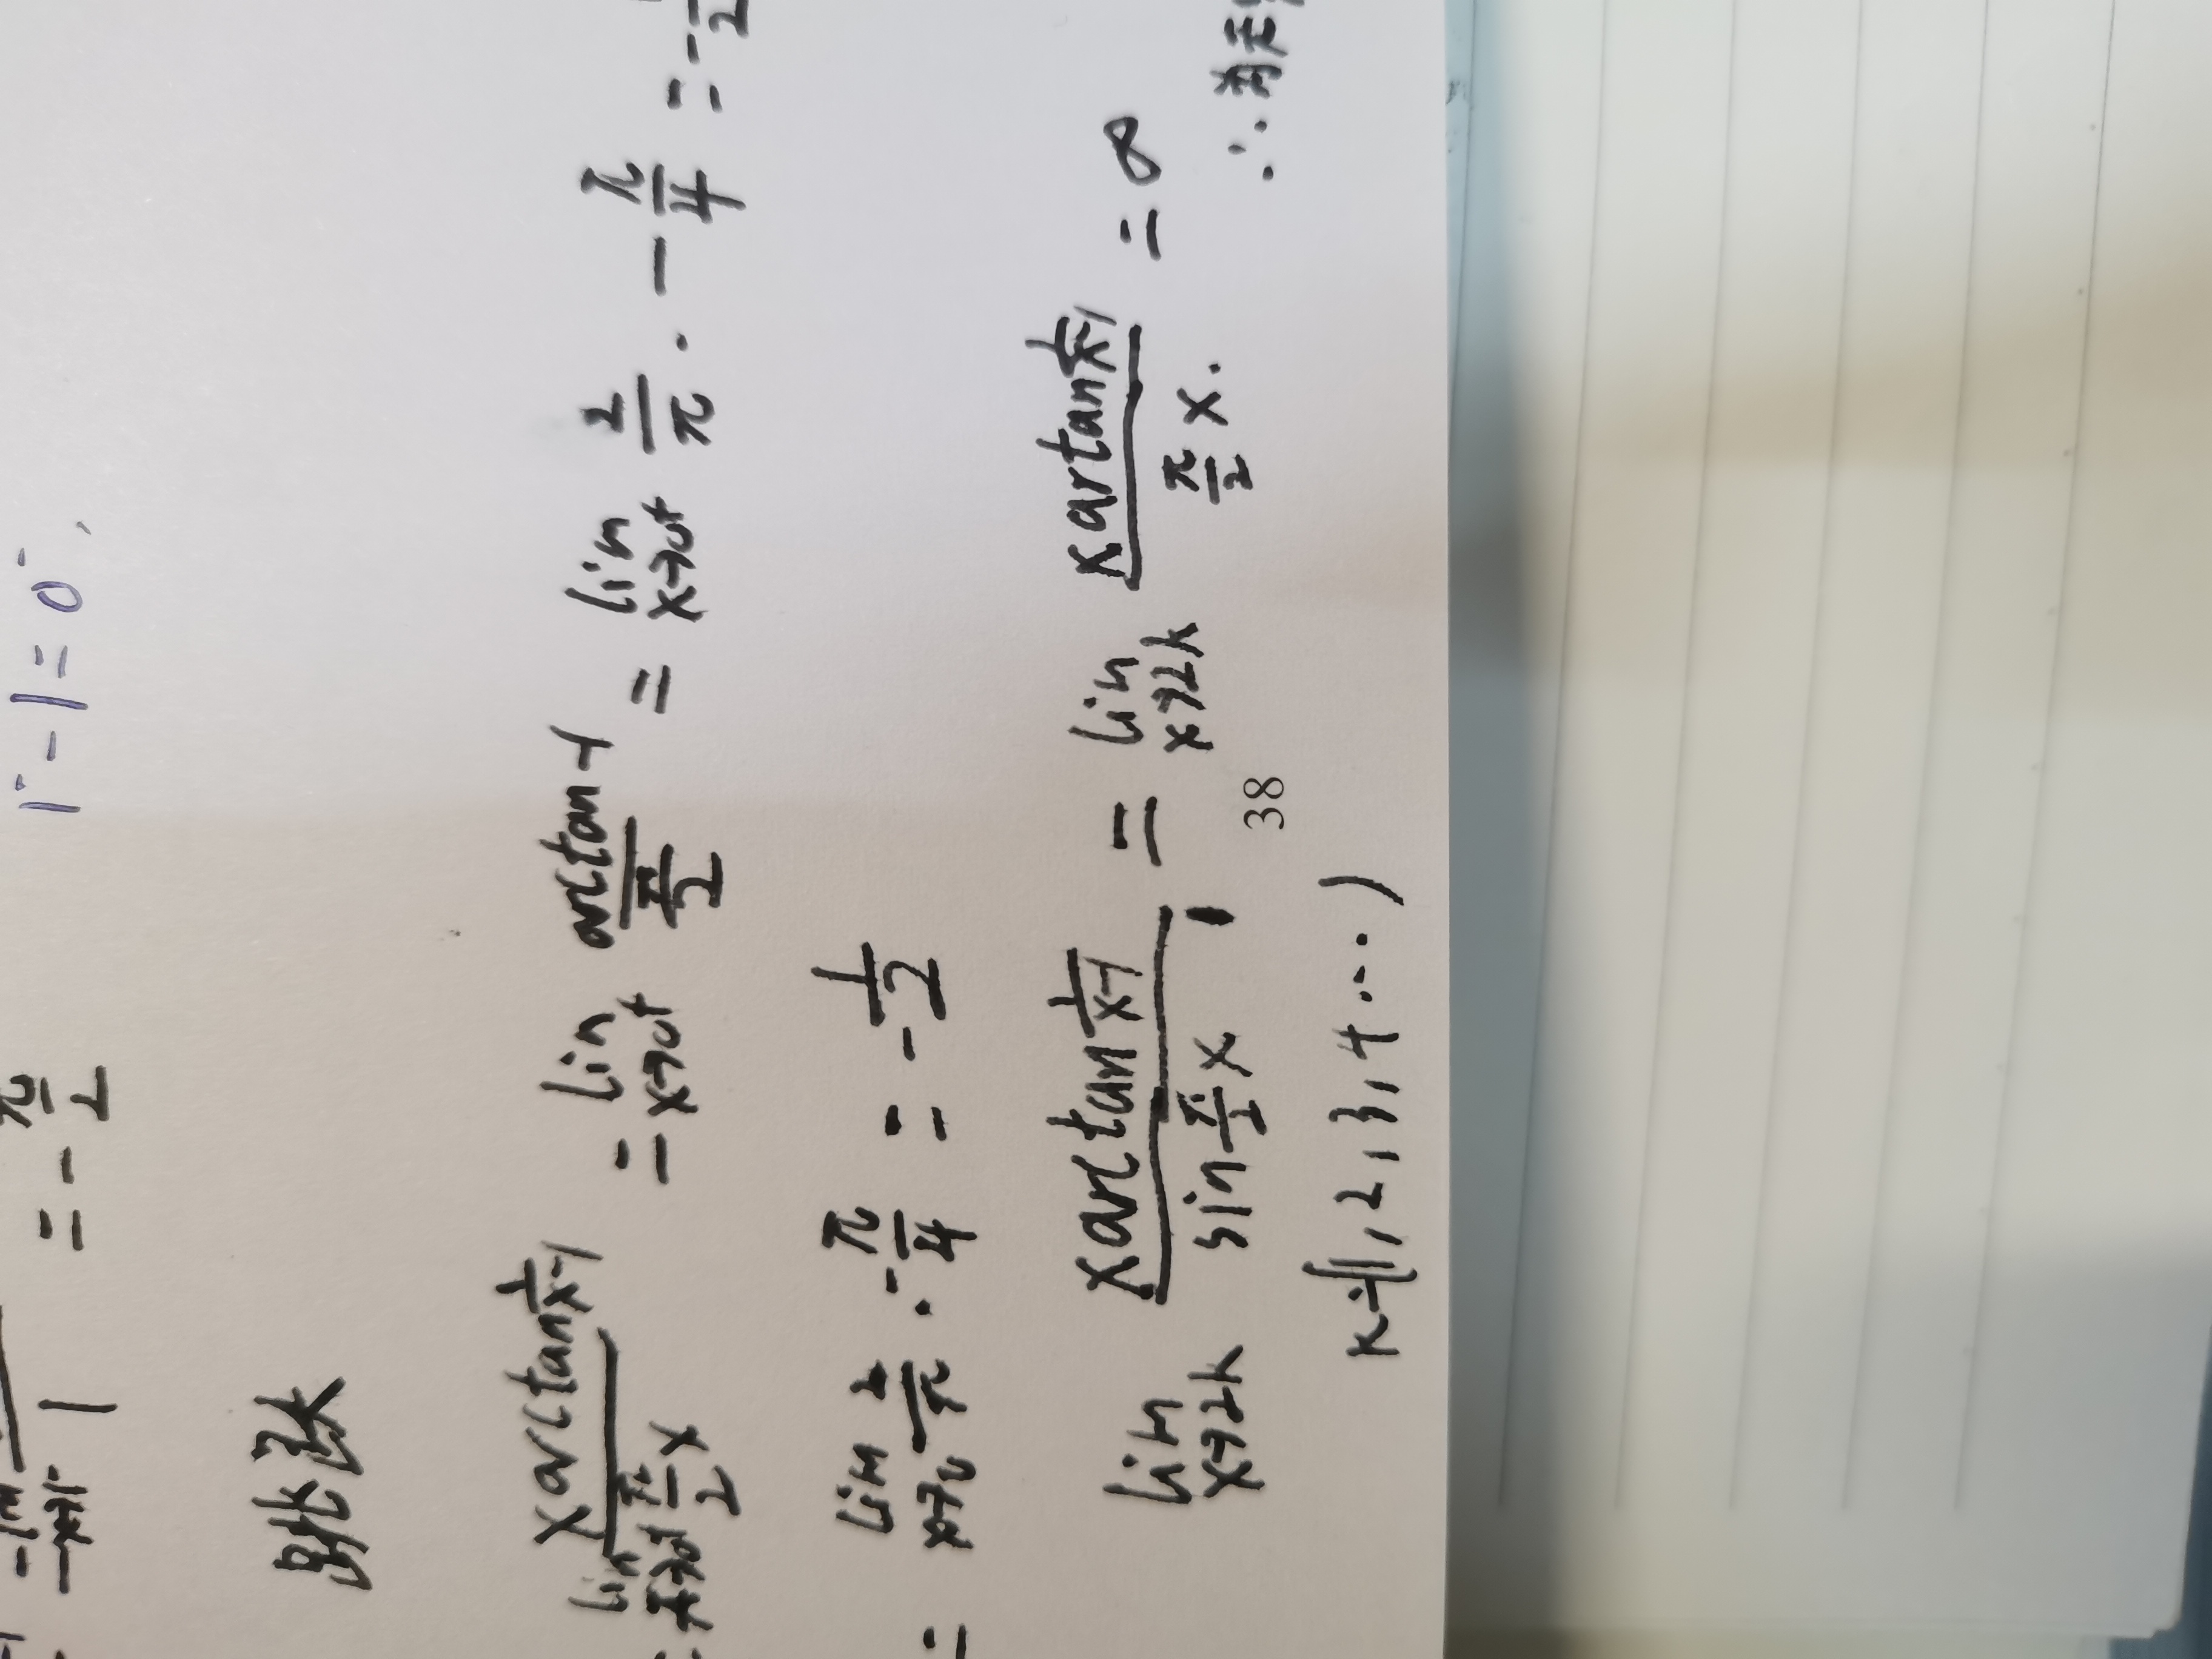 -lim x→1⁻ 1 = -π/2 1⁻-1=0⁻,
跳跃
= lim x→0⁺ xarctan 1/x-1 / π/2 x = lim x→0⁺ arctan-1 / π/2 = lim x→0⁺ 2/π · -π/4 = -1/2
= lim x→0⁻ 2/π · -π/4 = -1/2
lim x→2k xarctan 1/x-1 / sin π/2 x = lim x→2k xartan 1/x-1 / π/2 x. = ∞
∴为无
38
k=(1,2,3,4…)